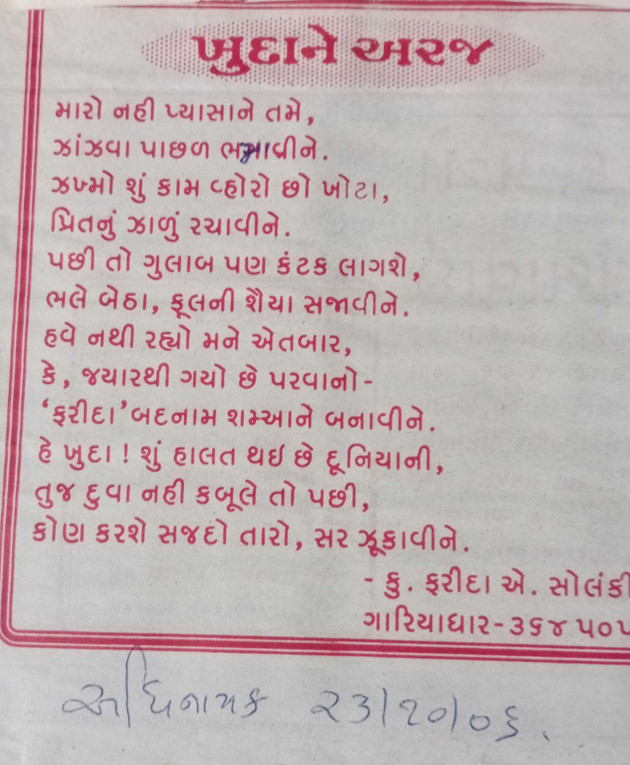 ખુદાને અરજ
મારો નહી પ્યાસાને તમે,
ઝાંઝવા પાછળ ભમાવીને.
ઝખ્મો શું કામ વ્હોરો છો ખોટા,
પ્રિતનું ઝાળું રચાવીને.
પછી તો ગુલાબ પણ કંટક લાગશે,
ભલે બેઠા, ફૂલની શૈયા સજાવીને.
હવે નથી રહ્યો મને એતબાર,
કે, જયારથી ગયો છે પરવાનો-
‘ફરીદા’ બદનામ શમ્આને બનાવીને.
હે ખુદા ! શું હાલત થઇ છે દૂનિયાની,
તુજ દુવા નહી કબૂલે તો પછી,
કોણ કરશે સજદો તારો, સર ઝૂકાવીને.
- કુ. ફરીદા એ. સોલંકી
ગારિયાધાર-૩૬૪૫૦૫
અધિનાયક ૨૩/૧૦/૦૬.